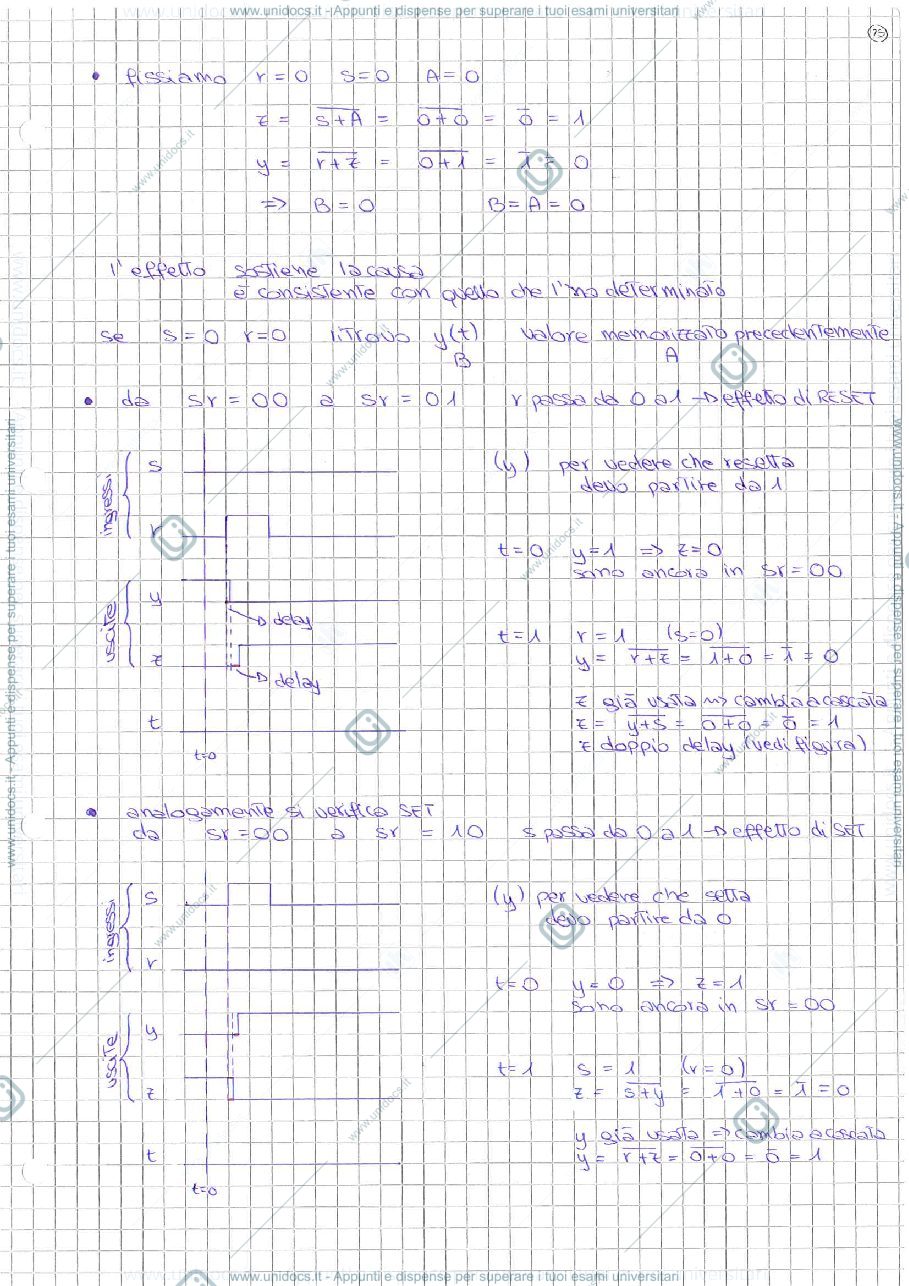 www.unidocs.it - Appunti e dispense per superare i tuoi esami universitari
• fissiamo r = 0 s = 0 A = 0
z = \overline{s+A} = \overline{0+0} = \overline{0} = 1
y = \overline{r+z} = \overline{0+1} = \overline{1} = 0
=> B = 0 B = A = 0
l'effetto sostiene la causa
è consistente con quello che l'ha determinato
se s=0 r=0 ritrovo y(t) valore memorizzato precedentemente
B A
• da sr = 00 a sr = 01 r passa da 0 a 1 → effetto di RESET
ingressi
s
r
uscite
y
→ delay
z
→ delay
t
t=0
(y) per vedere che resetta
devo partire da 1
t=0 y=1 => z=0
sono ancora in sr=00
t=1 r=1 (s=0)
y = \overline{r+z} = \overline{1+0} = \overline{1} = 0
z già usata ~> cambia a cascata
z = \overline{y+s} = \overline{0+0} = \overline{0} = 1
z doppio delay (vedi figura)
• analogamente si verifica SET
da sr=00 a sr = 10 s passa da 0 a 1 → effetto di SET
ingressi
s
r
uscite
y
z
t
t=0
(y) per vedere che setta
devo partire da 0
t=0 y=0 => z=1
sono ancora in sr=00
t=1 s=1 (r=0)
z = \overline{s+y} = \overline{1+0} = \overline{1} = 0
y già usata => cambia a cascata
y = \overline{r+z} = \overline{0+0} = \overline{0} = 1
www.unidocs.it - Appunti e dispense per superare i tuoi esami universitari